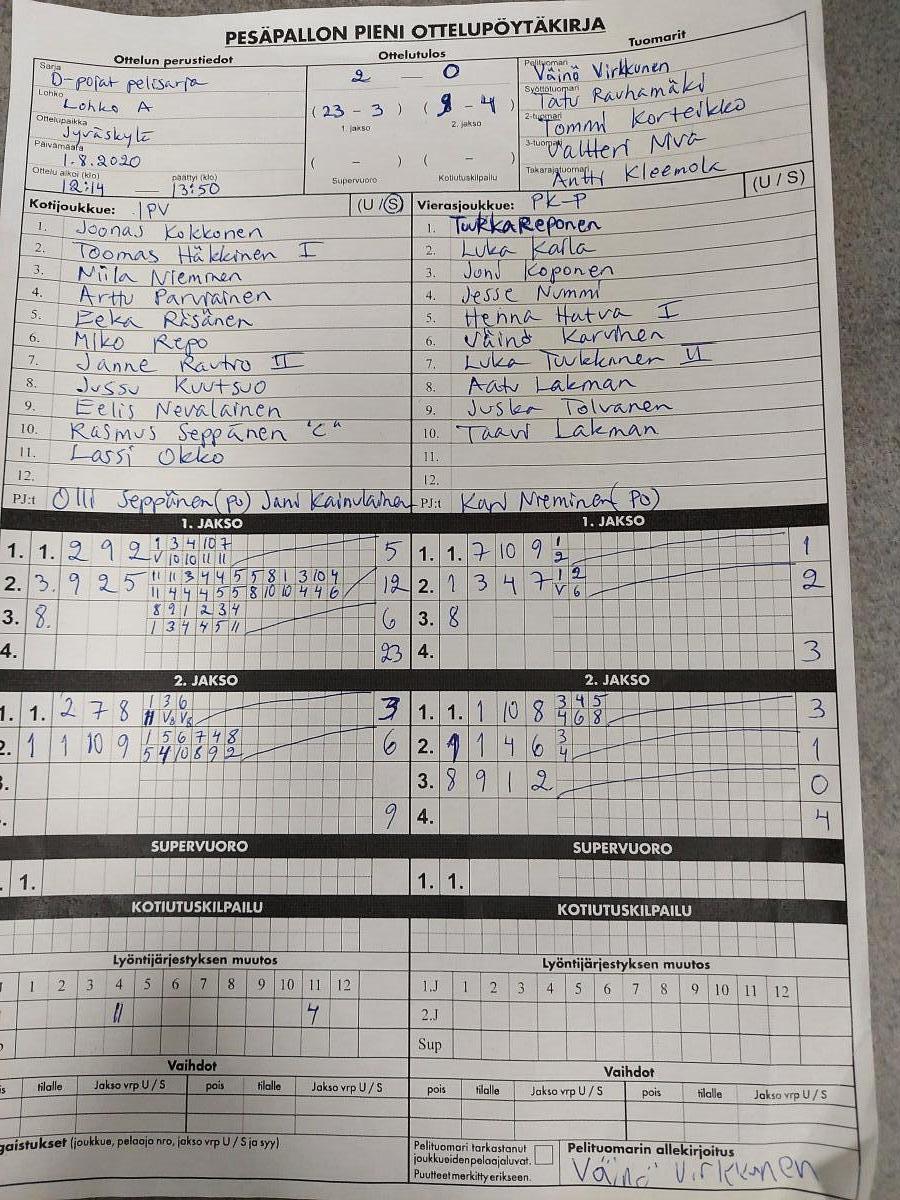 PESÄPALLON PIENI OTTELUPÖYTÄKIRJA
Ottelun perustiedot Ottelutulos Tuomarit
Sarja D-pojat pelisarja
Lohko Lohko A
Ottelupaikka Jyväskylä
Päivämäärä 1.8.2020
Ottelu alkoi (klo) 12:14 — päättyi (klo) 13:50
2 — 0
(23 - 3) (9 - 4)
1. jakso 2. jakso
( - ) ( - )
Supervuoro Kotiutuskilpailu
Pelituomari Väinö Virkkunen
Syöttötuomari Tatu Rauhamäki
2-tuomari Tommi Korteikko
3-tuomari Valtteri Niva
Takarajatuomari Antti Kleemola
(U / S)
Kotijoukkue: IPV (U / S)
1. Joonas Kokkonen
2. Toomas Häkkinen I
3. Niila Nieminen
4. Arttu Parviainen
5. Eeka Räsänen
6. Miko Repo
7. Janne Rautro II
8. Jussu Kuutsuo
9. Eelis Nevalainen
10. Rasmus Seppänen "C"
11. Lassi Okko
12.
PJ:t Olli Seppänen (po) Jani Kainulainen
Vierasjoukkue: PK-P
1. Tuukka Reponen
2. Luka Kaila
3. Joni Koponen
4. Jesse Nummi
5. Henna Hatva I
6. Väinö Karvinen
7. Luka Tuukkanen II
8. Aatu Lakman
9. Juska Tolvanen
10. Taavi Lakman
11.
12.
PJ:t Kari Nieminen (po)
1. JAKSO
1. 1. 2 9 2 1 3 4 10 7 5
V 10 10 11 11
2. 3. 9 2 5 11 11 3 4 4 5 5 8 1 3 10 4 12
11 4 4 4 5 5 8 10 10 4 4 6
3. 8. 8 9 1 2 3 4 6
1 3 4 4 5 11
4. 23
1. JAKSO
1. 1. 7 10 9 1 1
2
2. 1 3 4 7 1 2 2
V 6
3. 8
4. 3
2. JAKSO
1. 1. 2 7 8 1 3 6 3
11 V8 V8
2. 1 1 10 9 1 5 6 7 4 8 6
5 4 10 8 9 2
9
2. JAKSO
1. 1. 1 10 8 3 4 5 3
4 6 8
2. 1 1 4 6 3 1
4
3. 8 9 1 2 0
4. 4
SUPERVUORO
1.
SUPERVUORO
1. 1.
KOTIUTUSKILPAILU
KOTIUTUSKILPAILU
Lyöntijärjestyksen muutos
1 2 3 4 5 6 7 8 9 10 11 12
11 4
Lyöntijärjestyksen muutos
1.J 1 2 3 4 5 6 7 8 9 10 11 12
2.J
Sup
Vaihdot
tilalle Jakso vrp U / S pois tilalle Jakso vrp U / S
Vaihdot
pois tilalle Jakso vrp U / S pois tilalle Jakso vrp U / S
gaistukset (joukkue, pelaaja nro, jakso vrp U / S ja syy)
Pelituomari tarkastanut
joukkueiden pelaajaluvat.
Puutteet merkitty erikseen.
Pelituomarin allekirjoitus
Väinö Virkkunen